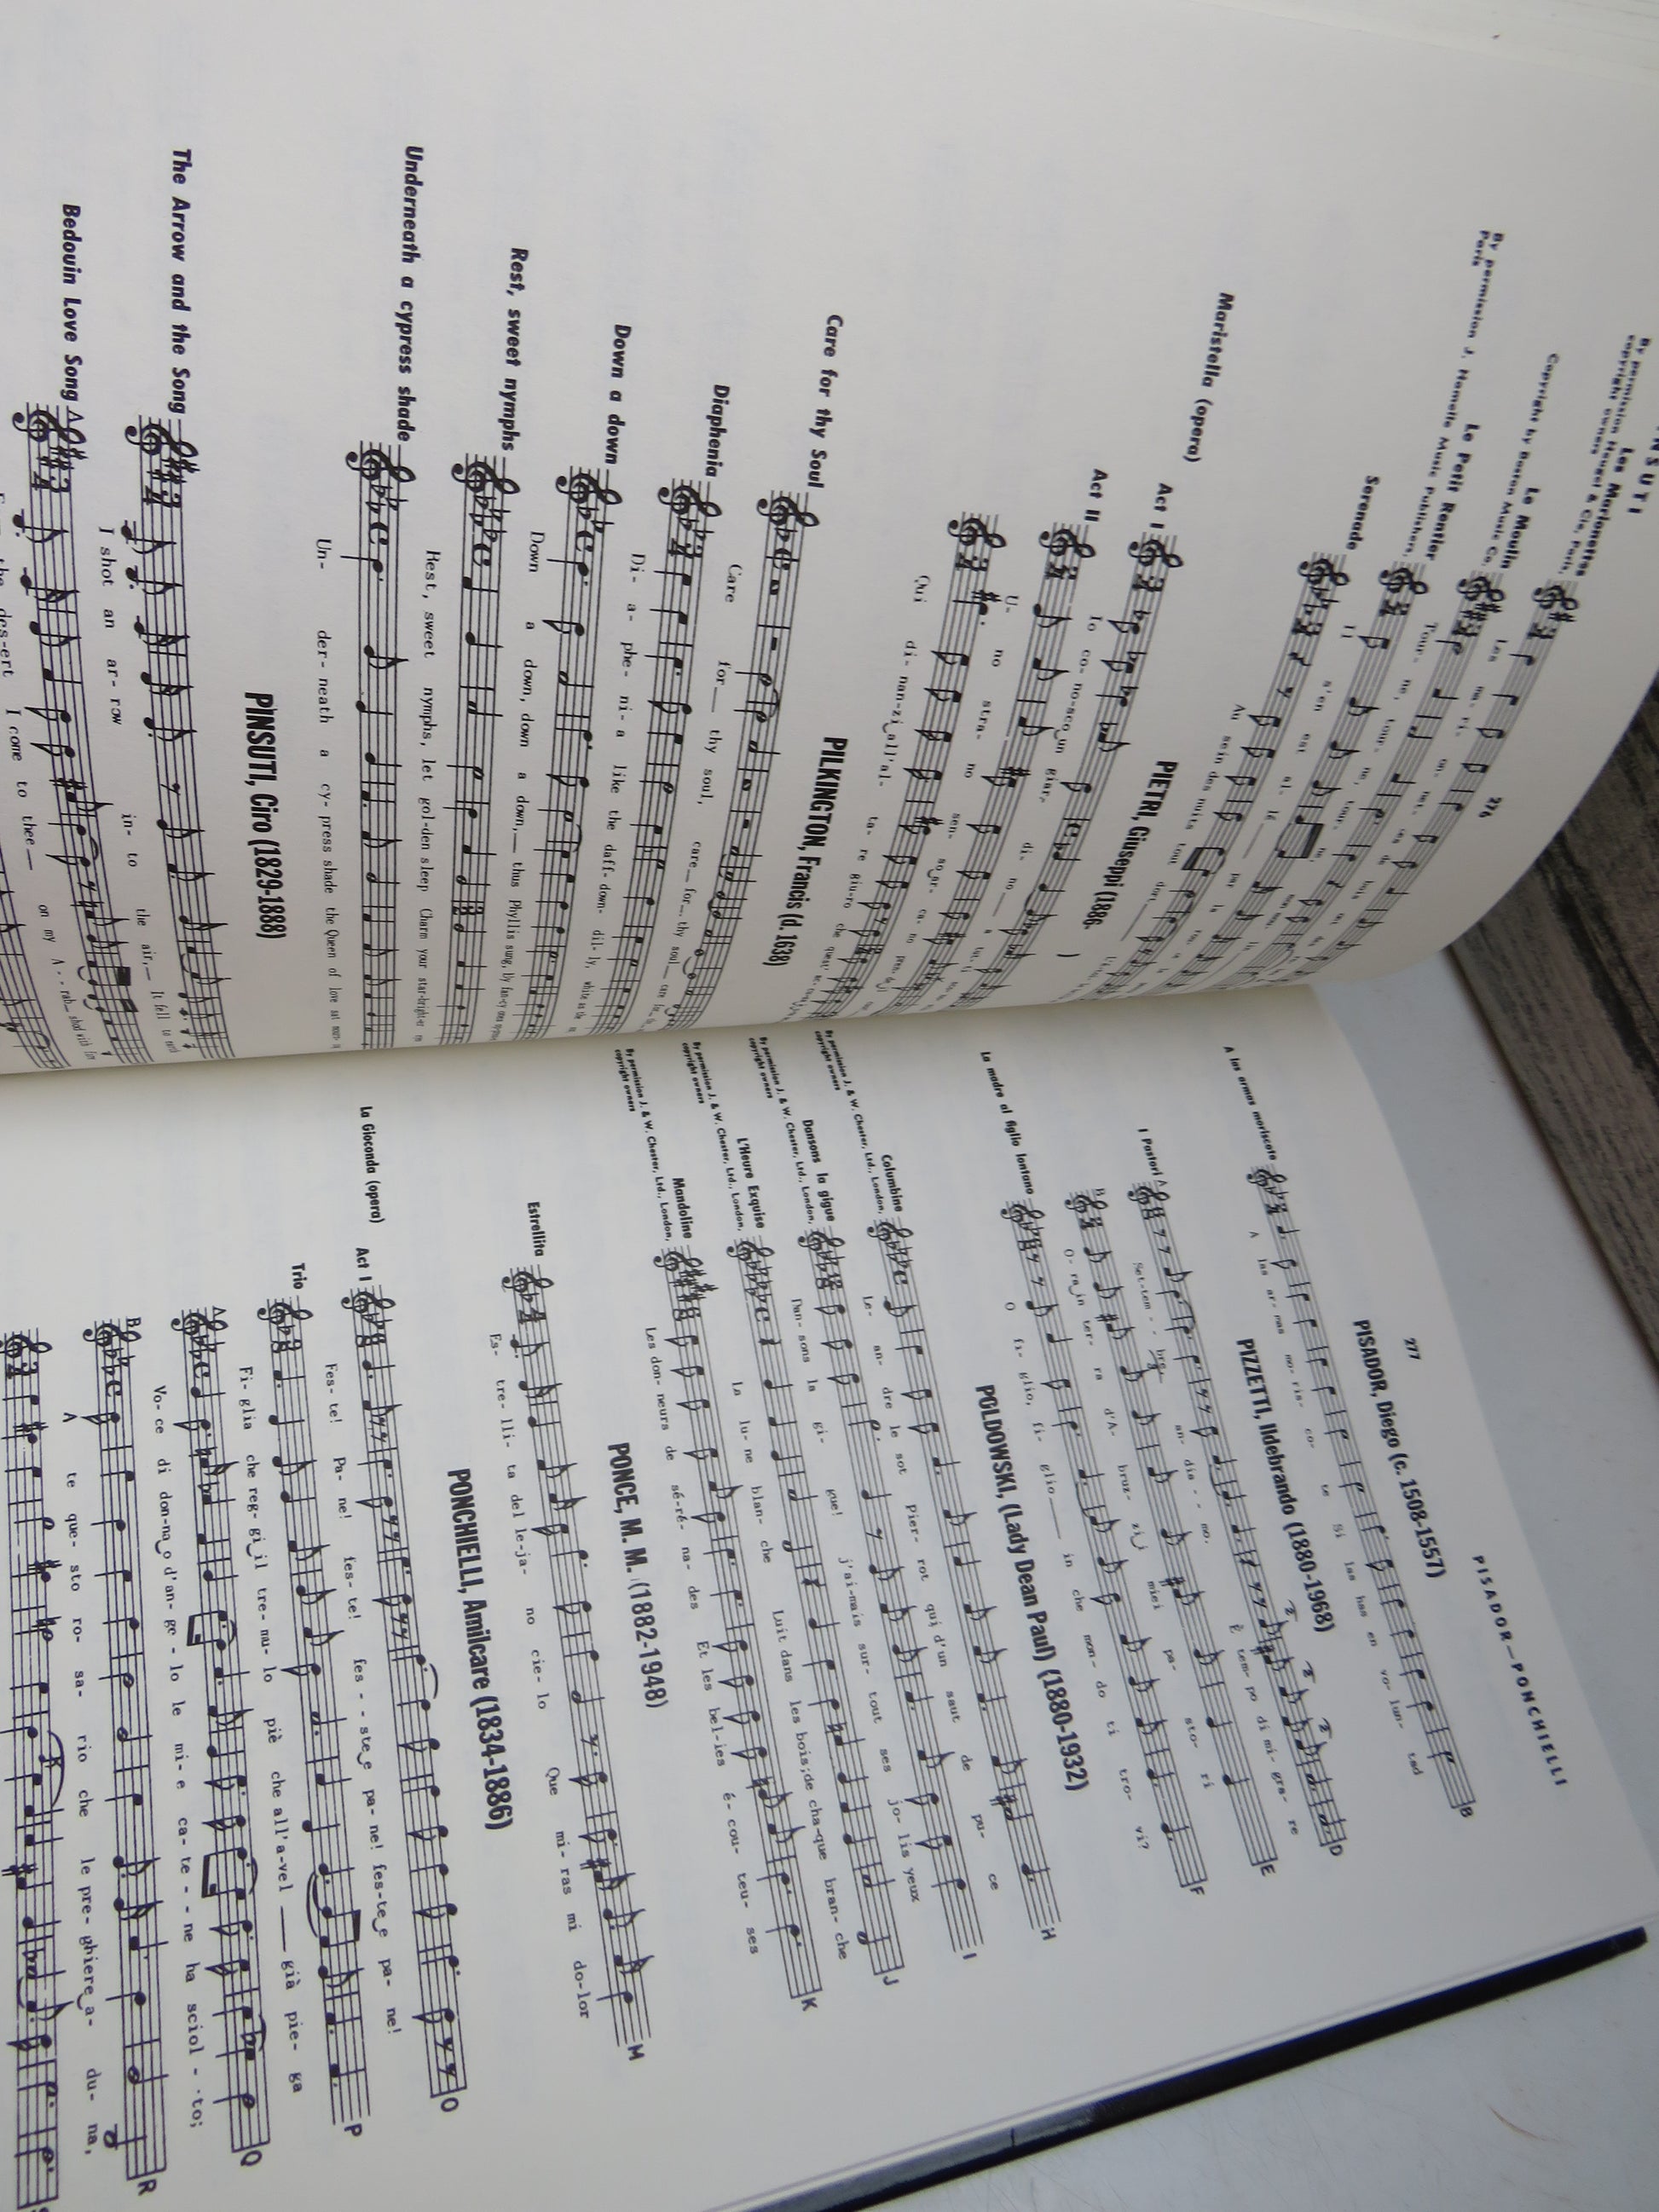 276
Les Marionettes
By permission Heugel & Cie, Paris,
copyright owners
Les ma- ri- on- net- tes
Le Moulin
Copyright by Boston Music Co.
Tour- ne, tour- ne, tour- ne,
Le Petit Rentier
By permission J. Hamelle Music Publishers,
Paris
Il s'en est al- lé
Serenade
Au sein des nuits tout dort
PIETRI, Giuseppi (1886-
)
Maristella (opera)
Act I
Io co- no-sco un giar- di- no
Act II
U- no stra- no sen- so ar- ca- no
Qui di- nan-zi all'al- ta- re giu-ro che
PILKINGTON, Francis (d.1638)
Care for thy Soul
Care for thy soul, care for thy soul care
Diaphenia
Di- a- phe- ni- a like the daff- down- dil- ly, white as the
Down a down
Down a down, down a down, thus Phyllis sung, by fan-cy once
Rest, sweet nymphs
Rest, sweet nymphs, let gol-den sleep Charm your star-bright-er
Underneath a cypress shade
Un- der- neath a cy- press shade the Queen of love sat
PINSUTI, Ciro (1829-1888)
The Arrow and the Song
I shot an ar- row in- to the air, It fell to
Bedouin Love Song
A
the des-ert I come to thee on my A - rab shod with
277
PISADOR—PONCHIELLI
PISADOR, Diego (c. 1508-1557)
A las armas moriscote
B
A las ar- mas mo- ris- co- te Si las has en vo- lun- tad
PIZZETTI, Ildebrando (1880-1968)
I Pastori A
D
Set-tem - - bre, an- dia - - mo. È tem- po di mi- gra- re
B
E
O- ra in ter- ra d'A- bruz- zi i miei pa- sto- ri
La madre al figlio lontano
F
O fi- glio, fi- glio in che mon- do ti tro- vi?
POLDOWSKI, (Lady Dean Paul) (1880-1932)
Columbine
By permission J. & W. Chester, Ltd., London,
copyright owners
H
Le- an- dre le sot Pier- rot qui d'un saut de pu- ce
Dansons la gigue
By permission J. & W. Chester, Ltd., London,
copyright owners
I
Dan- sons la gi- gue! j'ai-mais sur- tout ses jo- lis yeux
L'Heure Exquise
By permission J. & W. Chester, Ltd., London,
copyright owners
J
La lu- ne blan- che Luit dans les bois; de cha-que bran- che
Mandoline
By permission J. & W. Chester, Ltd., London,
copyright owners
K
Les don- neurs de sé-ré- na- des Et les bel-les é- cou- teu- ses
PONCE, M. M. (1882-1948)
Estrellita
M
Es- tre- lli- ta del le-ja- no cie- lo Que mi- ras mi do-lor
PONCHIELLI, Amilcare (1834-1886)
La Gioconda (opera)
Act I
O
Fes- te! Pa- ne! fes- te! fes - - ste e pa- ne! fes-te e pa- ne!
Trio
P
Fi- glia che reg- gi il tre- mu- lo piè che all'a-vel già pie- ga
A
Q
Vo- ce di don-na o d'an- ge - lo le mi- e ca- te - - ne ha sciol - - to;
B
R
A te que- sto ro- sa- rio che le pre- ghiere a- du- na,